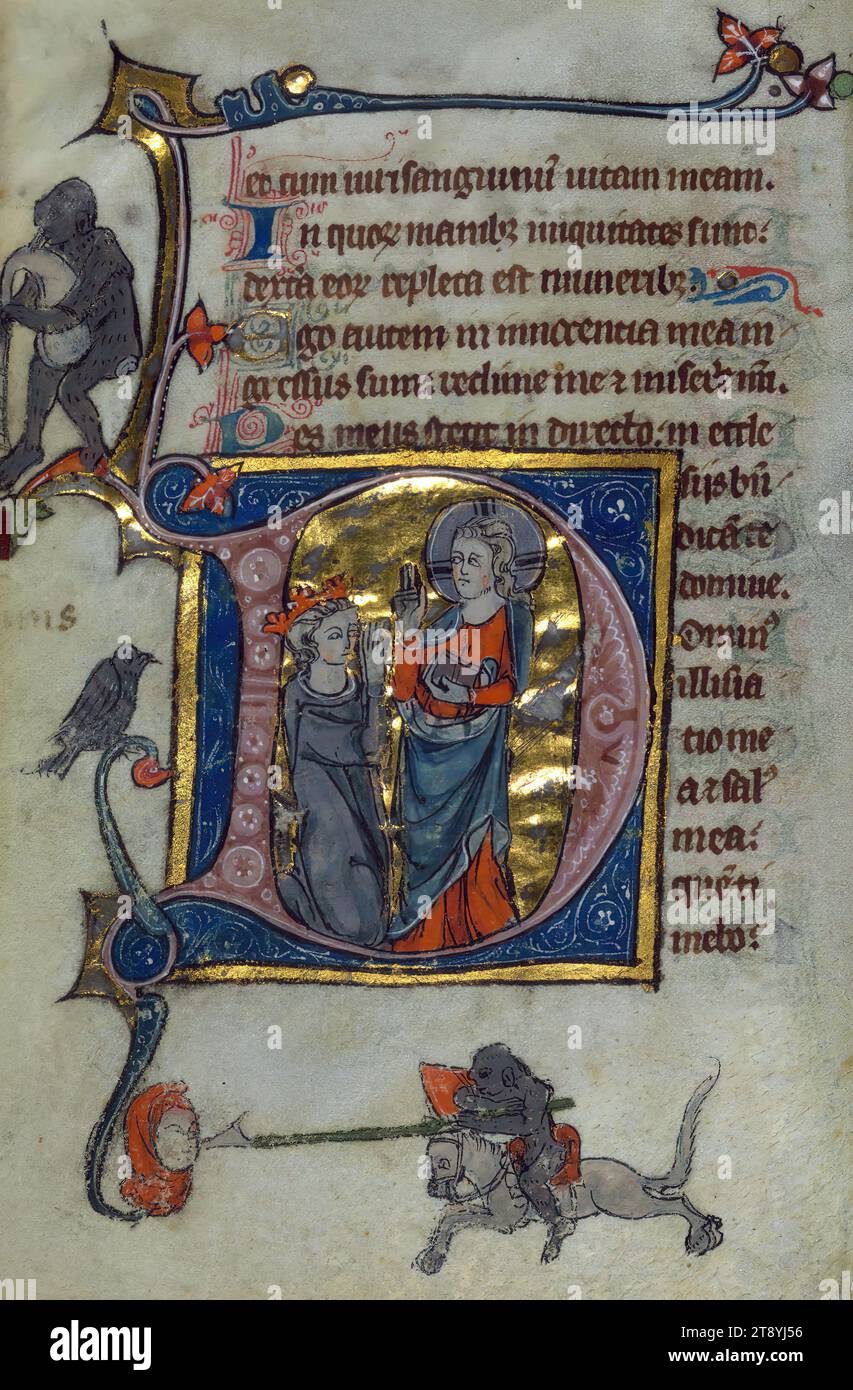 eo cum uiris sanguinū uitam meam.
In quoꝝ manibꝫ iniquitates sunt:
dextᵃa eoꝝ repleta est muneribꝫ.
Ego autem in innocentia mea in
gressus sum: redime me ⁊ miser̄e m̄i.
Pes meus stetit in directo: in eccle
siis bn̄
dicā te
domine.
Domin⁹
illū̄ia
tio me
a ⁊ sal⁹
mea:
quē ti
mebo:
alamy
Image ID: 2T8YJ56
www.alamy.com